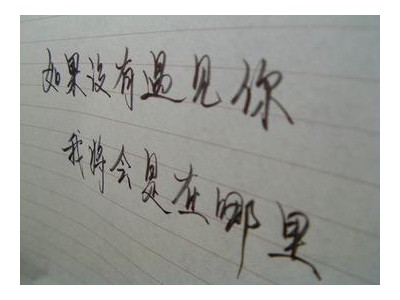 如果没有遇见你
我将会是在哪里